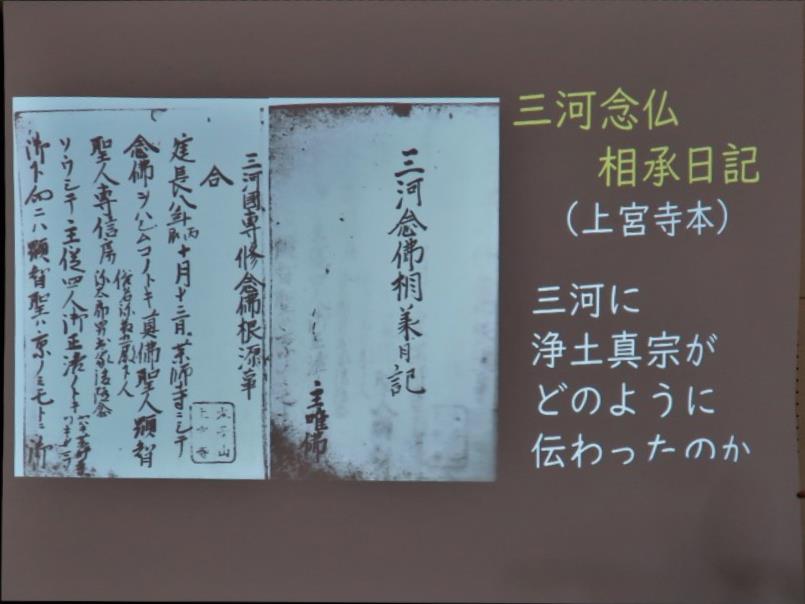 三河念仏
相承日記
(上宮寺本)
三河に
浄土真宗が
どのように
伝わったのか
三河念佛相承日記
主唯佛
三河國專修念佛根源事
合
建長八年丙辰十月十三日、薬師寺ニシテ
念佛ヲハシムコノトキ真佛聖人顕智
聖人専信房
ソウシテ主従四人御正洛ノトキ
御下向ニハ顕智聖ハ京ノミモトニ御
太子山
上宮寺